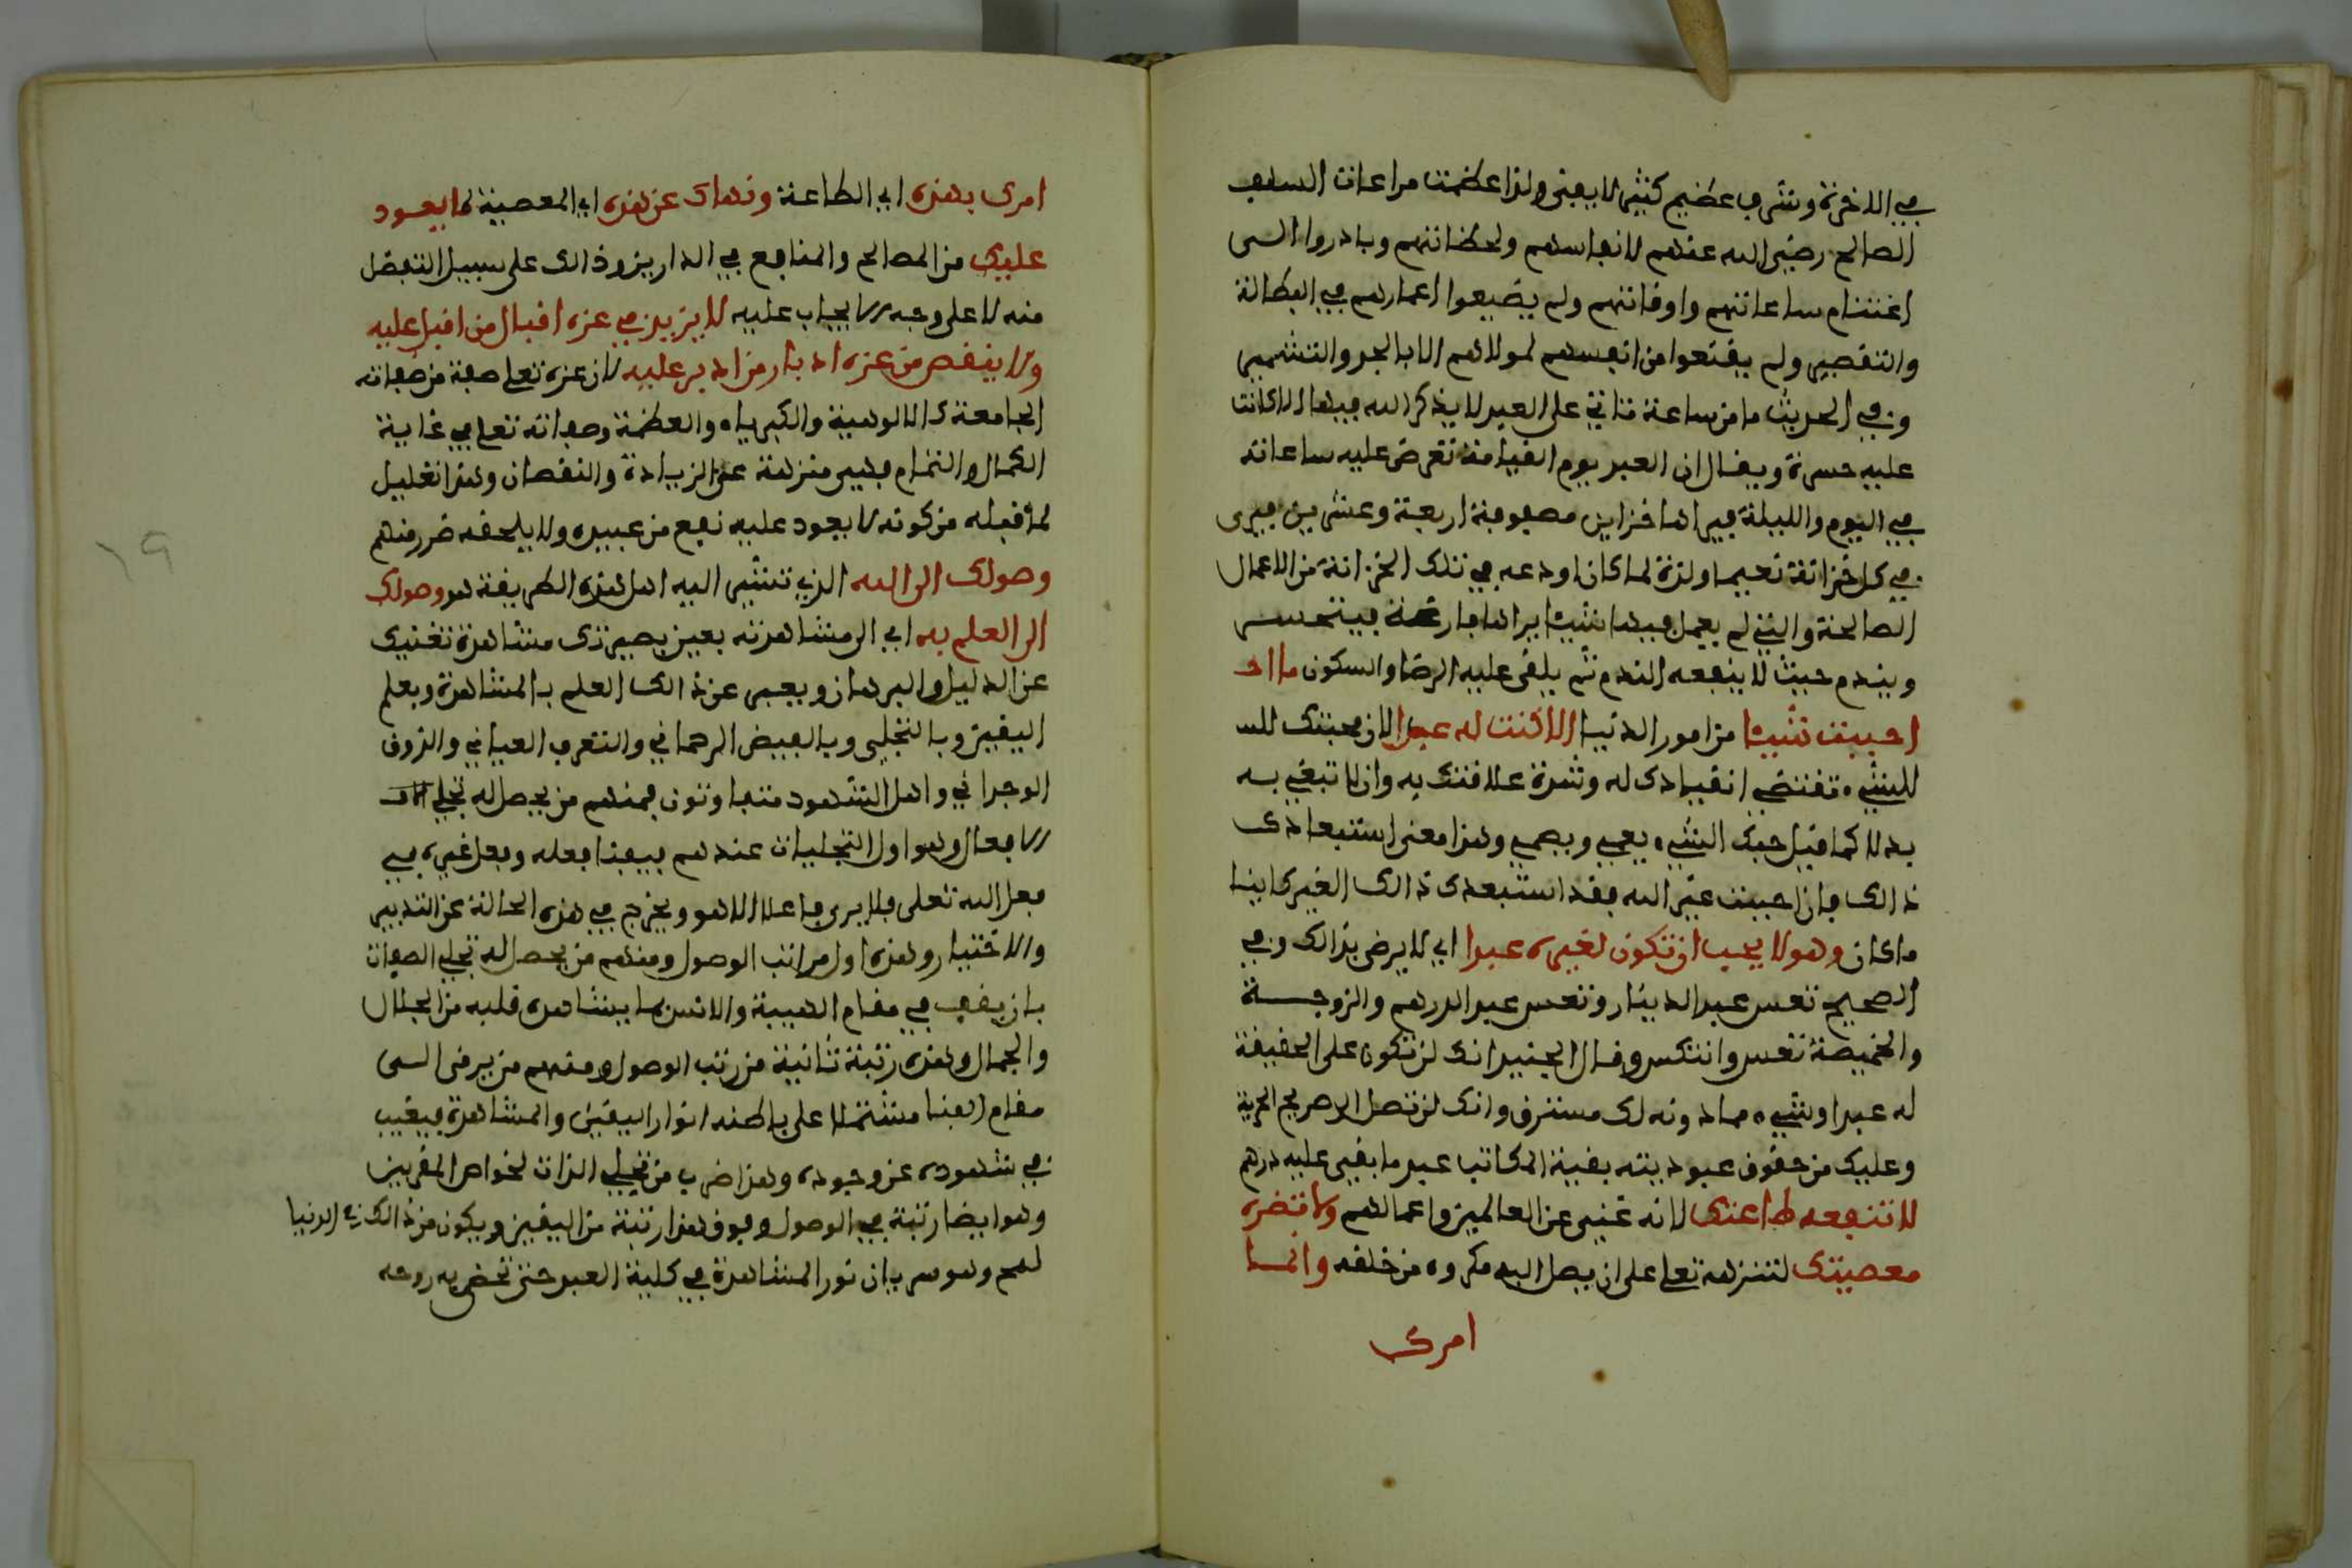 في الاخرة وشرف عظيم كثير لا يفنى ولذا عظمت مراعات السلف
الصالح رضي الله عنهم لانفاسهم ولحظاتهم وبادروا الى
اغتنام ساعاتهم واوقاتهم ولم يضيعوا اعمارهم في البطالة
والتقصير ولم يقنعوا من انفسهم لمولاهم الا بالجد والتشمير
وفي الحديث ما من ساعة تاتي على العبد لا يذكر الله فيها الا كانت
عليه حسرة ويقال ان العبد يوم القيامة تعرض عليه ساعاته
في اليوم والليلة فيراها خزاين مصفوفة اربعة وعشرين فيرى
في كل خزانة نعيما ولذة لما كان اودعه في تلك الخزانة من الاعمال
الصالحة والتي لم يعمل فيها شيئا يراها فارغة فيتحسر
ويندم حيث لا ينفعه الندم ثم يلقى عليه الرضا والسكون ما ا
احببت شيئا من امور الدنيا الا كنت له عبدا لان محبتك للس
للشيء تقتضي انقيادك له وشدة علاقتك به وان لا تبغي به
بدلا كما قيل حبك الشيء يعمي ويصمي وهذا معنى استبعادك
ذالك فان احببت غير الله فقد استبعدك ذالك الغير كاينا
ما كان وهو لا يحب ان تكون لغيره عبدا اي لا يرضى بذالك وفي
الصحيح تعس عبد الدينار وتعس عبد الدرهم والزوجة
والخميصة تعس وانتكس وقال الجنيد انك لن تكون على الحقيقة
له عبدا وشيء مما دونه لك مسترق وانك لن تصل الى صريح الحرية
وعليك من حقوق عبوديته بقية المكاتب عبد ما بقي عليه درهم
لا تنفعه طاعتك لانه غني عن العالمين واعمالهم ولا تضره
معصيتك لتنزهه تعلى على ان يصل اليه مكروه من خلقه وانما
امرك
امرك بهذه اي الطاعة ونهاك عن هذه اي المعصية لما يعود
عليك من المصالح والمنافع في الدارين وذالك على سبيل التفضل
منه لا على وجه الايجاب عليه لا يزيد في عزه اقبال من اقبل عليه
ولا ينقص من عزه ادبار من ادبر عليه لان عزه تعلى صفة من صفاته
الجامعة كالالوهية والكبرياء والعظمة وصفاته تعلى في غاية
الكمال والتمام فهي منزهة عن الزيادة والنقصان وهذا تعليل
لما قبله من كونه لا يعود عليه نفع من عبيده ولا يلحقه ضرر منهم
وصولك الى الله الذي تشير اليه اهل هذه الطريقة هو وصولك
الى العلم به اي الى مشاهدته بعين بصيرتك مشاهدة تغنيك
عن الدليل والبرهان ويعبر عن ذالك العلم بالمشاهدة وبعلم
اليقين وبالتجلي وبالفيض الرحماني والتعرف العياني والذوق
الوجداني واهل الشهود متفاوتون فمنهم من يحصل له تجلي
الافعال وهو اول التجليات عندهم فيفنا فعله وفعل غيره في
فعل الله تعلى فلا يرى فاعلا الا هو ويخرج في هذه الحالة عن التدبير
والاختيار وهذه اول مراتب الوصول ومنهم من يحصل له تجلي الصفات
بان يقف في مقام الهيبة والانس بما يشاهده قلبه من الجلال
والجمال وهذه رتبة ثانية من رتب الوصول ومنهم من يرقى الى
مقام الفنا مشتملا على باطنه انوار اليقين والمشاهدة فيغيب
في شهوده عن وجوده وهذا ضرب من تجلي الذات لخواص المقربين
وهو ايضا رتبة في الوصول وفوق هذا رتبة من اليقين ويكون من ذالك في الدنيا
لمح وهو سريان نور المشاهدة في كلية العبد حتى تحضى به روحه
١٩